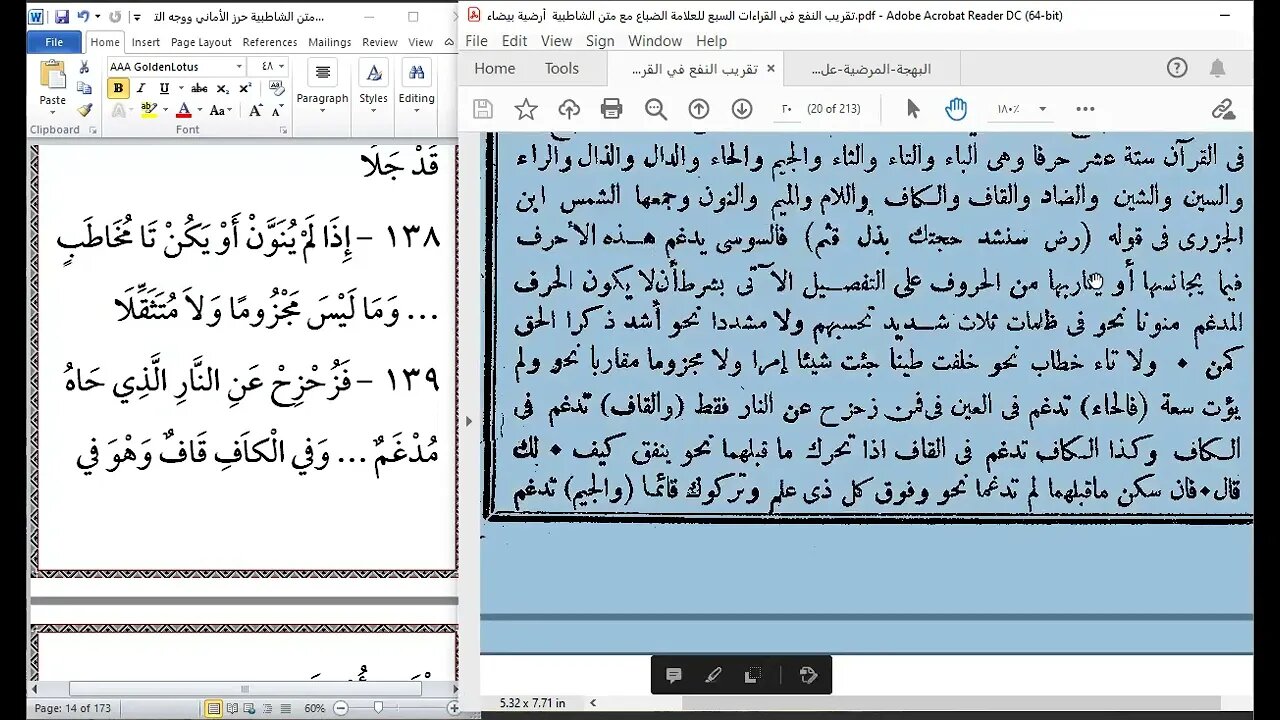 متن الشاطبية حرز الأماني ووجه الت...
File Home Insert Page Layout References Mailings Review View
AAA GoldenLotus ٤٨
B I U abc x₂ x²
Paste
Aa A A
Paragraph Styles Editing
Clipboard Font
قَدْ جَلَا
١٣٨ - إِذَا لَمْ يُنَوَّنْ أَوْ يَكُنْ تَا مُخَاطَبٍ
... وَمَا لَيْسَ مَجْزُومًا وَلاَ مُتَثَقِّلَا
١٣٩ - فَزُحْزِحْ عَنِ النَّارِ الَّذِي حَاهُ
مُدْغَمٌ ... وَفِي الْكَافِ قَافٌ وَهْوَ فِي
Page: 14 of 173 60%
تقريب النفع في القراءات السبع للعلامة الضباع مع متن الشاطبية أرضية بيضاء.pdf - Adobe Acrobat Reader DC (64-bit)
File Edit View Sign Window Help
Home Tools تقريب النفع في القر... × البهجة-المرضية-عل...
٢٠ (20 of 213) ١٨٠٪
فى القرآن ستة عشر حرفا وهى الباء والتاء والثاء والجيم والحاء والدال والذال والراء
والسين والشين والضاد والقاف والكاف واللام والميم والنون وجمعها الشمس ابن
الجزرى فى قوله (رض سنشد حجتك بذل قثم) فالسوسى يدغم هذه الأحرف
فيما يجانسها أو يقاربها من الحروف على التفصيل الآتى بشرط أن لا يكون الحرف
المدغم منونا نحو فى ظلمات ثلاث شديد تحسبهم ولا مشددا نحو أشد ذكرا الحق
كمن ٠ ولا تاء خطاب نحو خلقت طينا جئت شيئا إمرا ولا مجزوما مقاربا نحو ولم
يؤت سعة (فالحاء) تدغم فى العين فى فمن زحزح عن النار فقط (والقاف) تدغم فى
الكاف وكذا الكاف تدغم فى القاف اذا تحرك ما قبلهما نحو ينفق كيف ٠ لك
قال ٠ فان سكن ماقبلهما لم تدغما نحو وفوق كل ذى علم وتركوك قائما (والجيم) تدغم
5.32 x 7.71 in